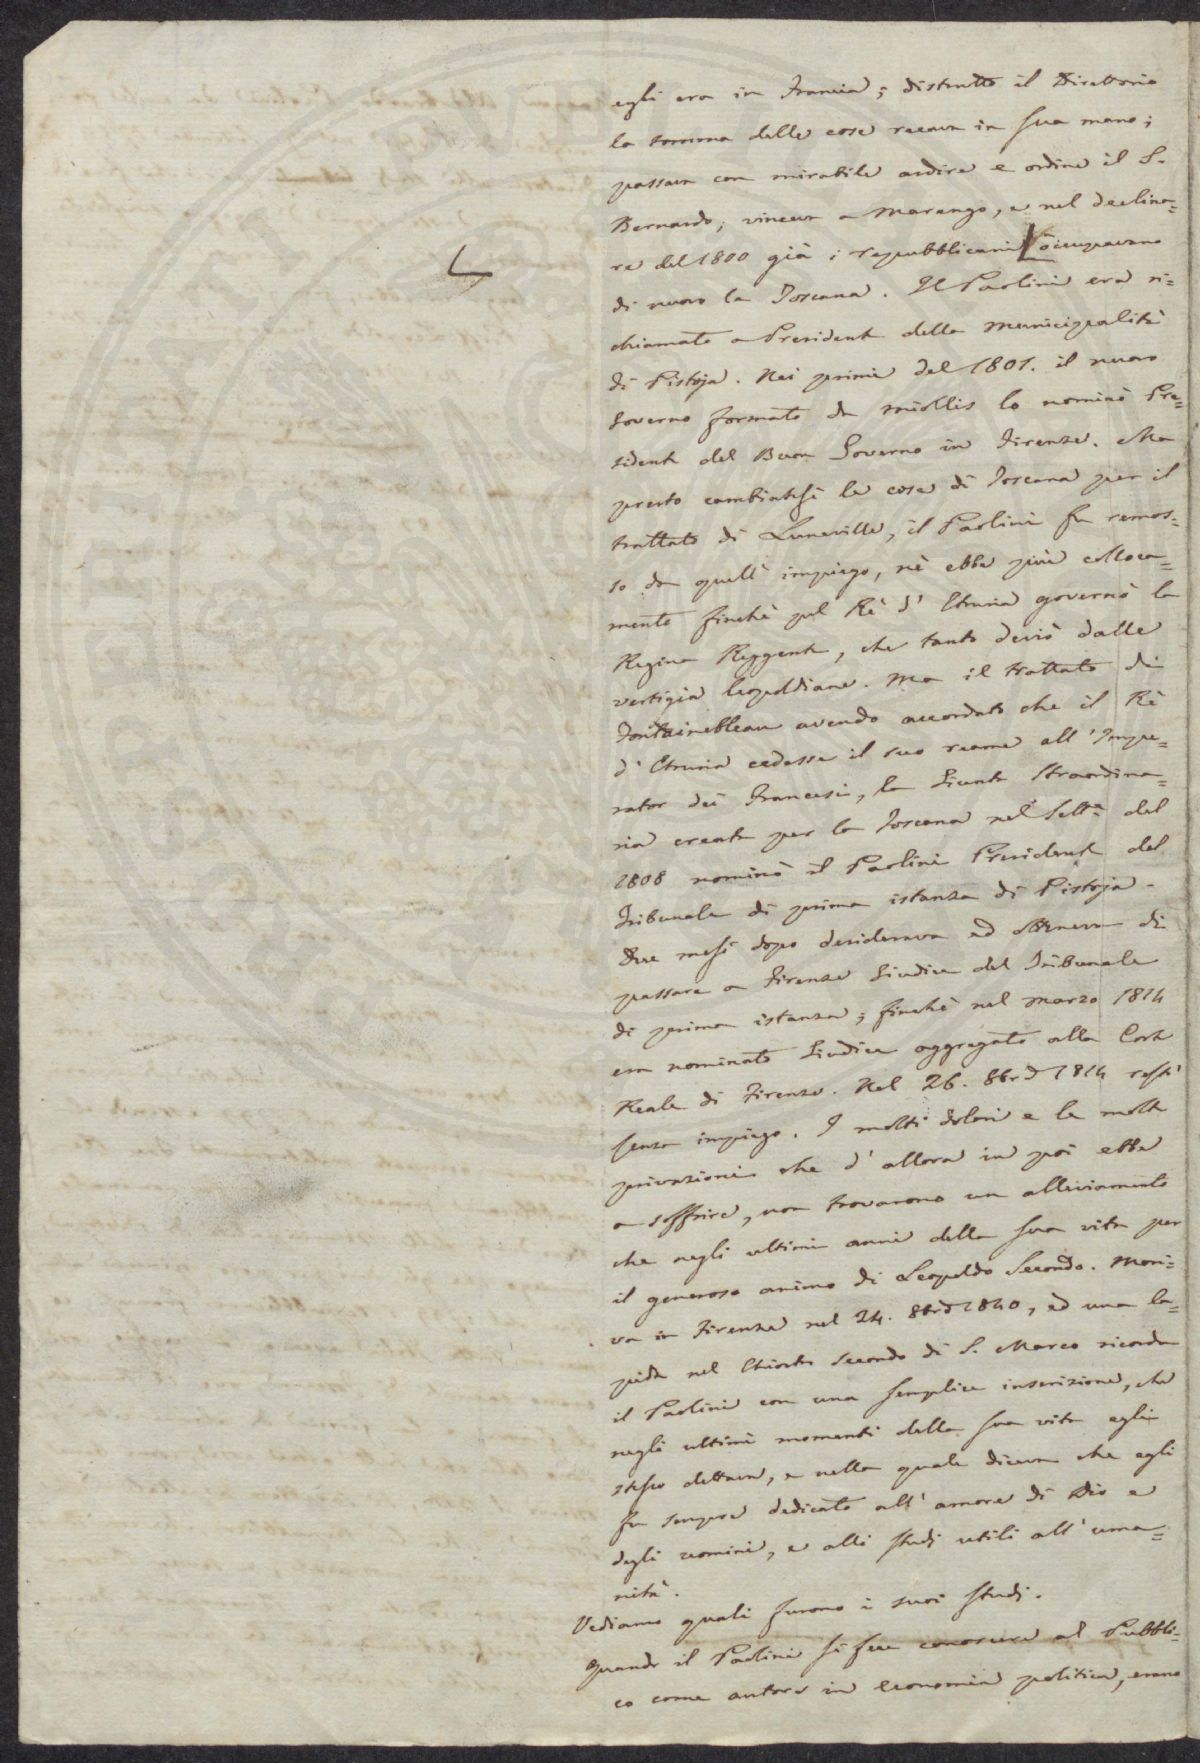 egli era in Francia; distrutto il Direttorio
la somma delle cose recava in sua mano;
passava con mirabile ardire e ordine il S.
Bernardo; vinceva a Marengo, e nel declina=
re del 1800 già i repubblicani occupavano
di nuovo la Toscana. Il Paolini era ri=
chiamato a Presidente della Municipalità
di Pistoja. Nei primi del 1801. il nuovo
Governo formato da Miollis lo nominò Pre=
sidente del Buon Governo in Firenze. Ma
presto cambiatesi le cose di Toscana per il
trattato di Luneville, il Paolini fu remos=
so da quell' impiego, nè ebbe più colloca=
mento finchè pel Rè d' Etruria governò la
Regina Reggente, che tanto deviò dalle
vestigia leopoldiane. Ma il trattato di
Fontainebleau avendo accordato che il Rè
d' Etruria cedesse il suo reame all' Impe=
rator dei Francesi, la Giunta Straordina=
ria creata per la Toscana nel Sett.e del
1808 nominò il Paolini Presidente del
Tribunale di prima istanza di Pistoja.
Due mesi dopo desiderava ed otteneva di
passare a Firenze Giudice del Tribunale
di prima istanza; finchè nel Marzo 1814
era nominato Giudice aggregato alla Corte
Reale di Firenze. Nel 26. 8bre 1814 restò
senza impiego. I molti dolori e le molte
privazioni che d' allora in poi ebbe
a soffrire, non trovarono un alleviamento
che negli ultimi anni della sua vita per
il generoso animo di Leopoldo Secondo. Mori=
va in Firenze nel 24. 8bre 1840, ed una la=
pida nel Chiostro Secondo di S. Marco ricorda
il Paolini con una semplice inscrizione, che
negli ultimi momenti della sua vita egli
stesso dettava, e nella quale diceva che egli
fu sempre dedicato all' amore di Dio e
degli uomini, e alli studj utili all' uma=
nità.
Vediamo quali furono i suoi studj.
Quando il Paolini si fece conoscere al Pubbli=
co come autore in economia politica, erano